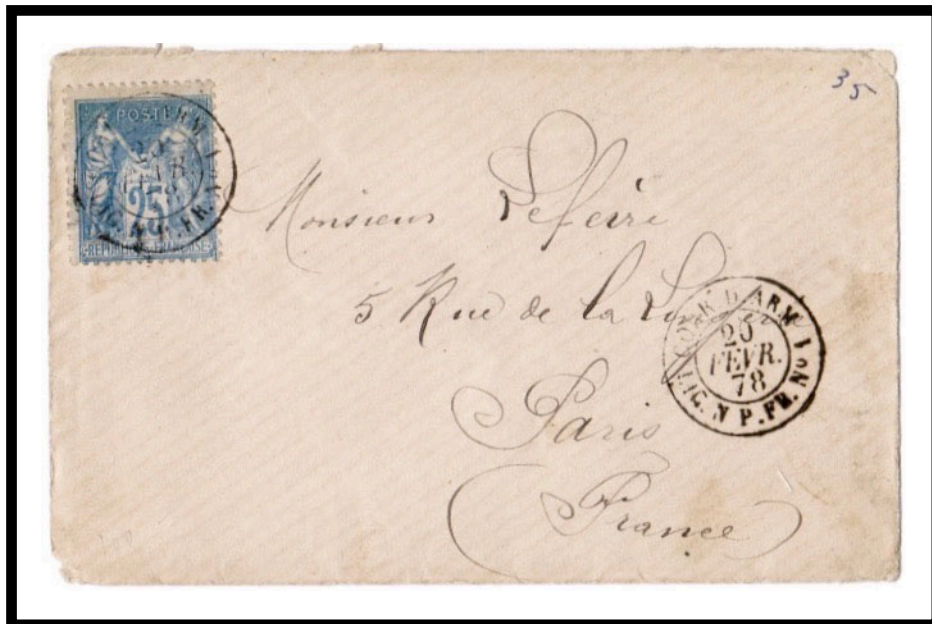 35
POSTE
25
REPUBLIQUE FRANCAISE
Monsieur Lefeire
5 Rue de la
Paris
(France)
CORR. D. ARM
FEVR.
78
LIG. N P. FR. No 1